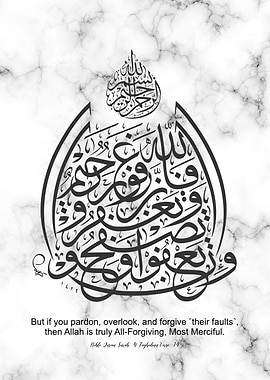 بسم الله الرحمن الرحيم
وإن تعفوا وتصفحوا وتغفروا فإن الله غفور رحيم
But if you pardon, overlook, and forgive ˹their faults˺,
then Allah is truly All-Forgiving, Most Merciful.
Surah At Taghabun Verse 14